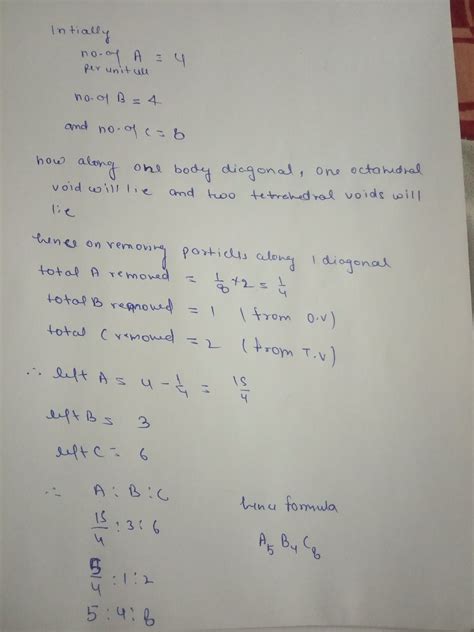 Intially
no. of A = 4
per unit cell
no. of B = 4
and no. of C = 8
now along one body diagonal, one octahedral
void will lie and two tetrahedral voids will
lie
hence on removing particles along 1 diagonal
total A removed = 1/8 × 2 = 1/4
total B removed = 1 (from O.V)
total C removed = 2 (from T.V)
∴ left A = 4 - 1/4 = 15/4
left B = 3
left C = 6
∴ A : B : C
15/4 : 3 : 6
hence formula
A5 B4 C8
5/4 : 1 : 2
5 : 4 : 8